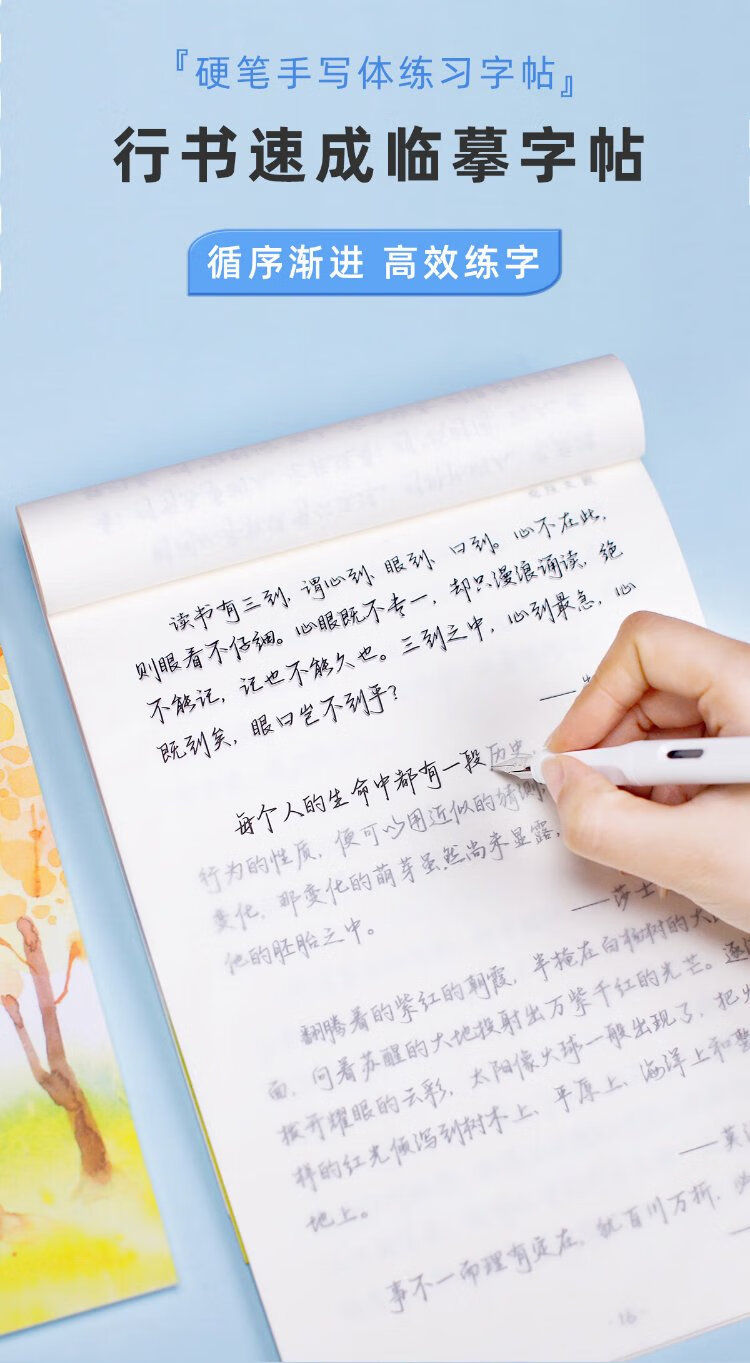 『硬笔手写体练习字帖』
行书速成临摹字帖
循序渐进 高效练字
读书有三到，谓心到，眼到，口到。心不在此，
则眼看不仔细。心眼既不专一，却只漫浪诵读，绝
不能记，记也不能久也。三到之中，心到最急，心
既到矣，眼口岂不到乎？
每个人的生命中都有一段历史，
行为的性质，便可以用近似的猜测，
变化，那变化的萌芽虽然尚未显露，
他的胚胎之中。
——莎士
翻腾着的紫红的朝霞，半掩在白杨树的大
面，向着苏醒的大地投射出万紫千红的光芒。逐
拨开耀眼的云彩，太阳像火球一般出现了，把
样的红光倾泻到树木上、平原上、海洋上和整
地上。
——莫
事不一而理有定在，犹百川万折，必
16